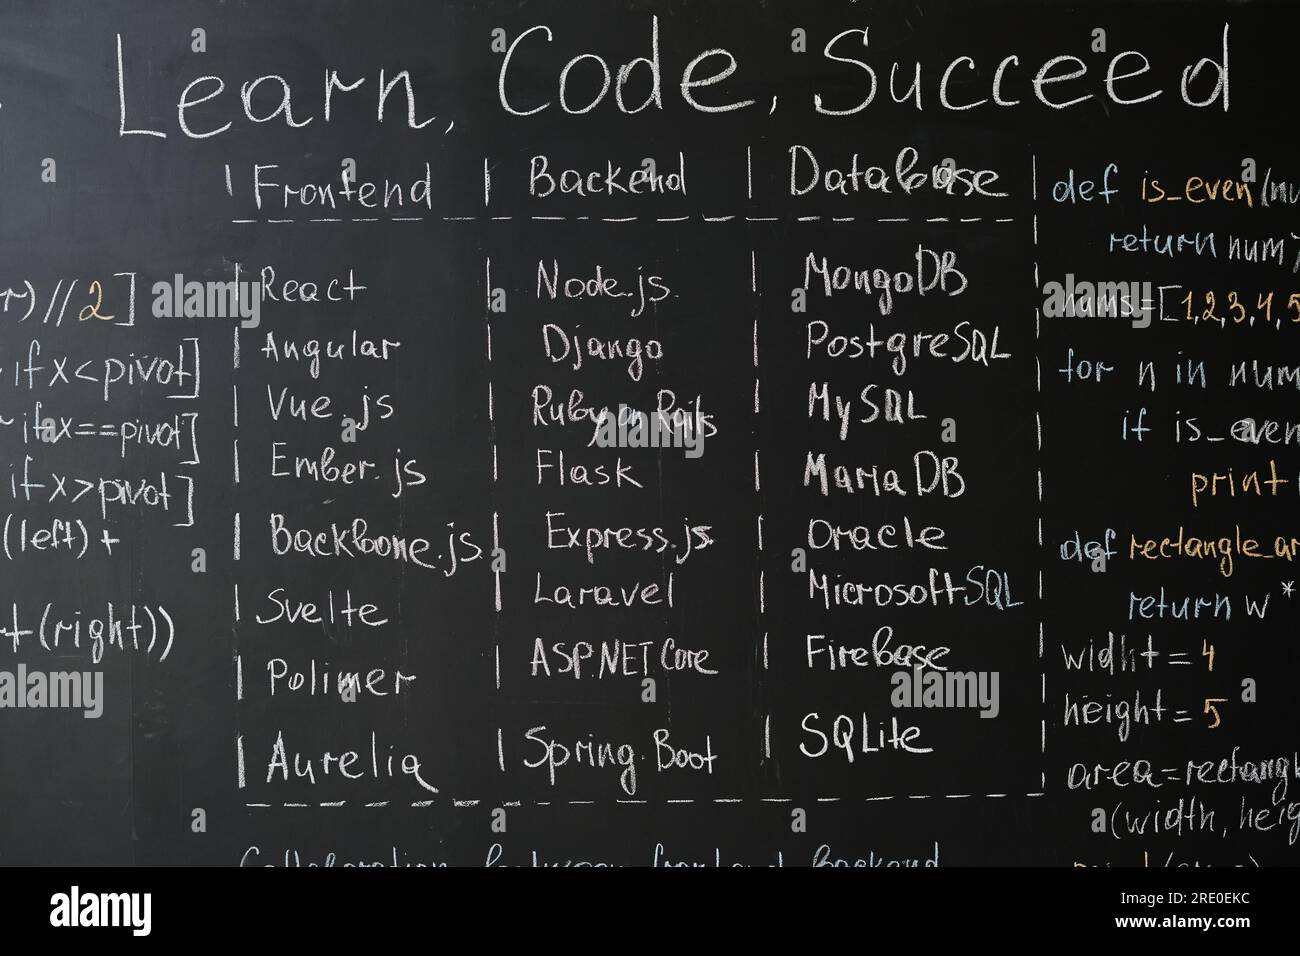 Learn, Code, Succeed
Frontend | Backend | Database
React | Node.js | MongoDB
Angular | Django | PostgreSQL
Vue.js | Ruby on Rails | MySQL
Ember.js | Flask | MariaDB
Backbone.js | Express.js | Oracle
Svelte | Laravel | Microsoft SQL
Polimer | ASP.NET Core | Firebase
Aurelia | Spring.Boot | SQLite
Collaboration between frontend Backend
r) // 2]
if x < pivot]
if x == pivot]
if x > pivot]
(left) +
t (right))
def is_even(nu
return num %
nums = [1,2,3,4,5
for n in num
if is_even
print
def rectangle_ar
return w *
widht = 4
height = 5
area = rectangl
(width, heig
alamy
Image ID: 2RE0EKC
www.alamy.com